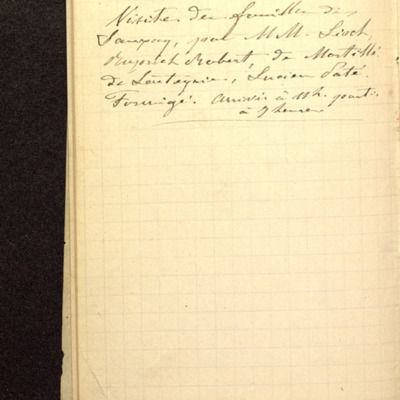 Visite des fouilles de
Sanxay, par MM. Lisch,
Ruprich Robert, de Mortillet
de Lasteyrie, Lucien Paté
Formigé. Arrivés à 11h. parti
à 7 heures